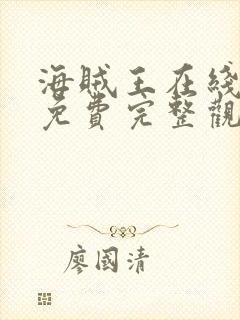 海賊王在綫
免費完整觀
廖國清